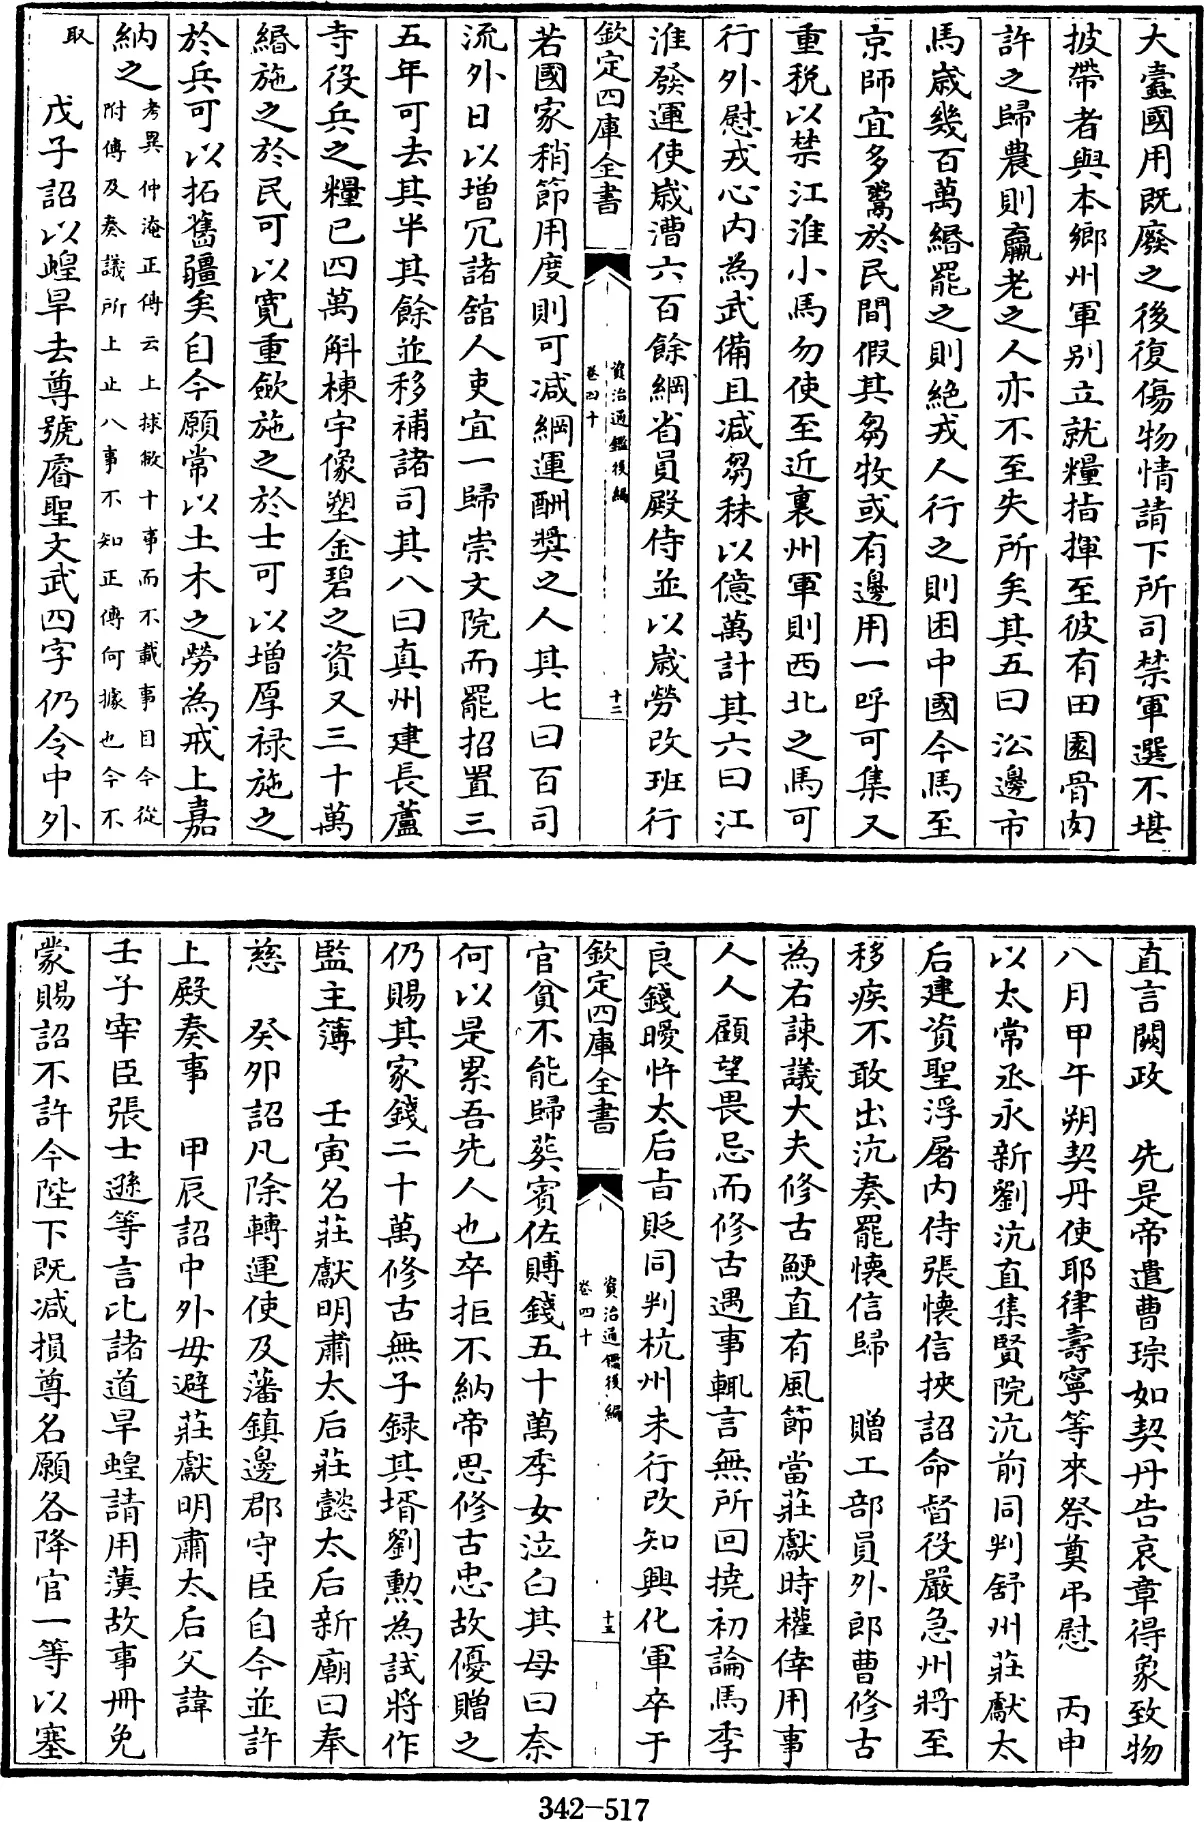 大蠹國用既廢之後復傷物情請下所司禁軍選不堪
披帶者與本鄉州軍别立就糧指揮至彼有田園骨肉
許之歸農則羸老之人亦不至失所矣其五曰沿邊市
馬歳幾百萬緡罷之則絶戎人行之則困中國今馬至
京師宜多鬻於民間假其芻牧或有邊用一呼可集又
重税以禁江淮小馬勿使至近裏州軍則西北之馬可
行外慰戎心内為武備且减芻秣以億萬計其六曰江
淮發運使歳漕六百餘綱省員殿侍並以歳勞改班行
欽定四庫全書
資治通鑑後編
卷四十
十二
若國家稍節用度則可减綱運酬奬之人其七曰百司
流外日以增冗諸舘人吏宜一歸崇文院而罷招置三
五年可去其半其餘並移補諸司其八曰真州建長蘆
寺役兵之糧已四萬斛棟宇像塑金碧之資又三十萬
緡施之於民可以寛重斂施之於士可以增厚禄施之
於兵可以拓舊疆矣自今願常以土木之勞為戒上嘉
納之
考異仲淹正傳云上捄敝十事而不載事目今從
附傳及奏議所上止八事不知正傳何據也今不
取
戊子詔以蝗旱去尊號睿聖文武四字仍令中外
直言闕政　先是帝遣曹琮如契丹告哀章得象致物
八月甲午朔契丹使耶律壽寧等來祭奠弔慰　丙申
以太常丞永新劉沆直集賢院沆前同判舒州莊獻太
后建資聖浮屠内侍張懷信挾詔命督役嚴急州將至
移疾不敢出沆奏罷懷信歸　贈工部員外郎曹修古
為右諫議大夫修古鯁直有風節當莊獻時權倖用事
人人顧望畏忌而修古遇事輒言無所回撓初論馬季
良錢曖忤太后㫖貶同判杭州未行改知興化軍卒于
欽定四庫全書
資治通鑑後編
卷四十
十三
官貧不能歸葬賓佐賻錢五十萬季女泣白其母曰奈
何以是累吾先人也卒拒不納帝思修古忠故優贈之
仍賜其家錢二十萬修古無子録其壻劉勲為試將作
監主簿　壬寅名莊獻明肅太后莊懿太后新廟曰奉
慈　癸卯詔凡除轉運使及藩鎮邊郡守臣自今並許
上殿奏事　甲辰詔中外毋避莊獻明肅太后父諱
壬子宰臣張士遜等言比諸道旱蝗請用漢故事冊免
蒙賜詔不許今陛下既减損尊名願各降官一等以塞
342-517